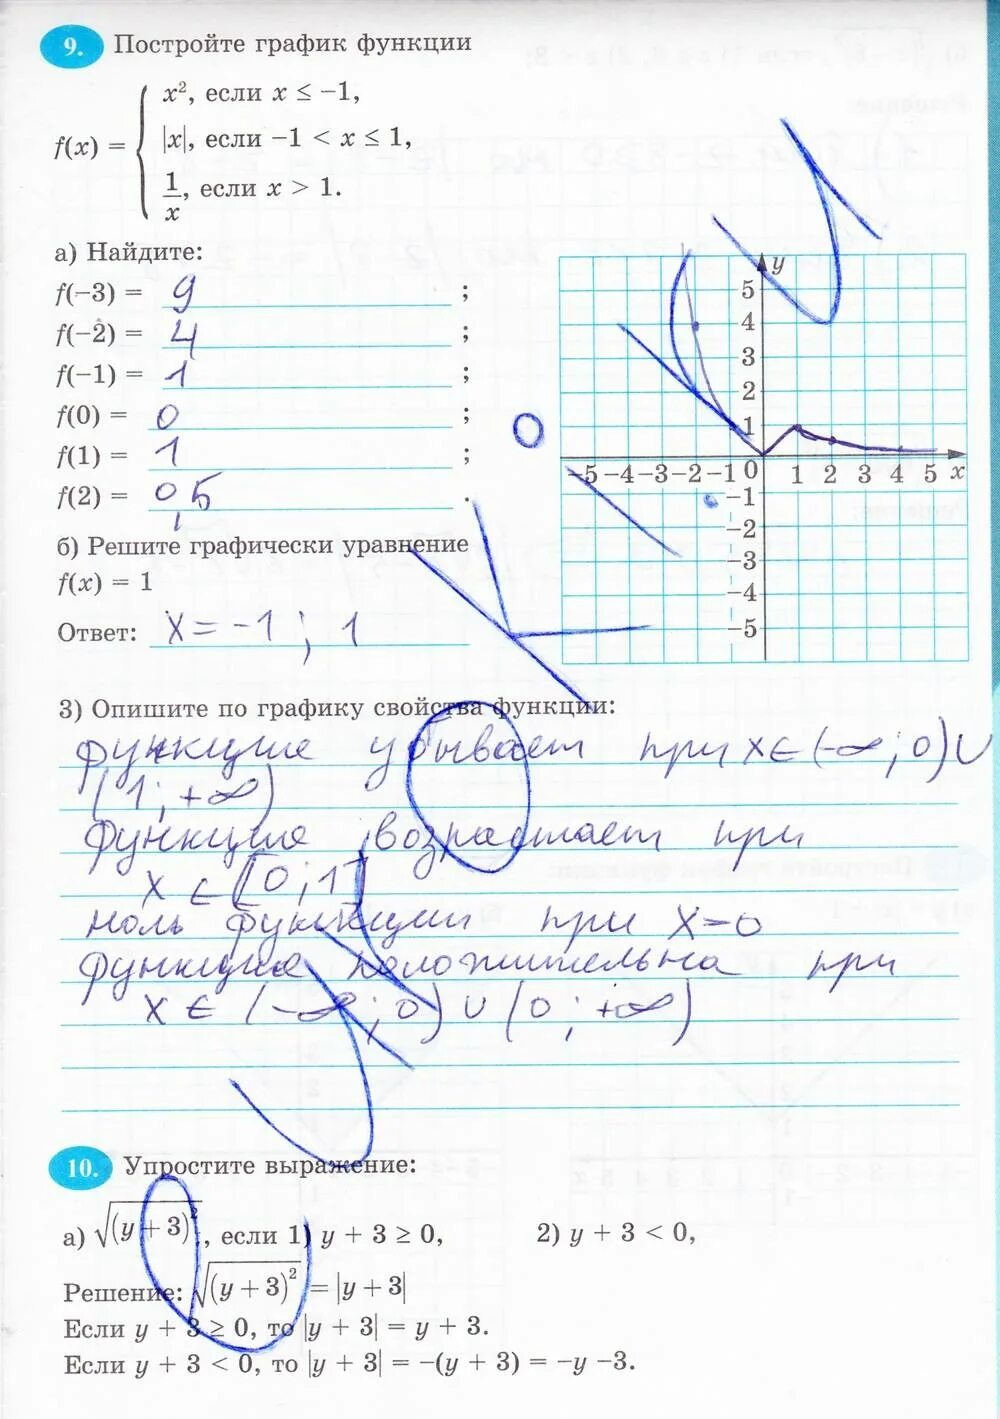 9. Постройте график функции
f(x) = { x², если x ≤ −1,
|x|, если −1 < x ≤ 1,
1/x, если x > 1.
а) Найдите:
f(−3) = 9 ;
f(−2) = 4 ;
f(−1) = 1 ;
f(0) = 0 ;
f(1) = 1 ;
f(2) = 0,5 .
б) Решите графически уравнение
f(x) = 1
Ответ: x = −1 ; 1
y
5
4
3
2
1
−5 −4 −3 −2 −1 0 1 2 3 4 5 x
−1
−2
−3
−4
−5
3) Опишите по графику свойства функции:
функция убывает при x ∈ (−∞; 0) ∪
(1; +∞)
функция возрастает при
x ∈ [0; 1]
ноль функции при x = 0
функция положительна при
x ∈ (−∞; 0) ∪ (0; +∞)
10. Упростите выражение:
а) √(y + 3)², если 1) y + 3 ≥ 0, 2) y + 3 < 0,
Решение: √(y + 3)² = |y + 3|
Если y + 3 ≥ 0, то |y + 3| = y + 3.
Если y + 3 < 0, то |y + 3| = −(y + 3) = −y −3.